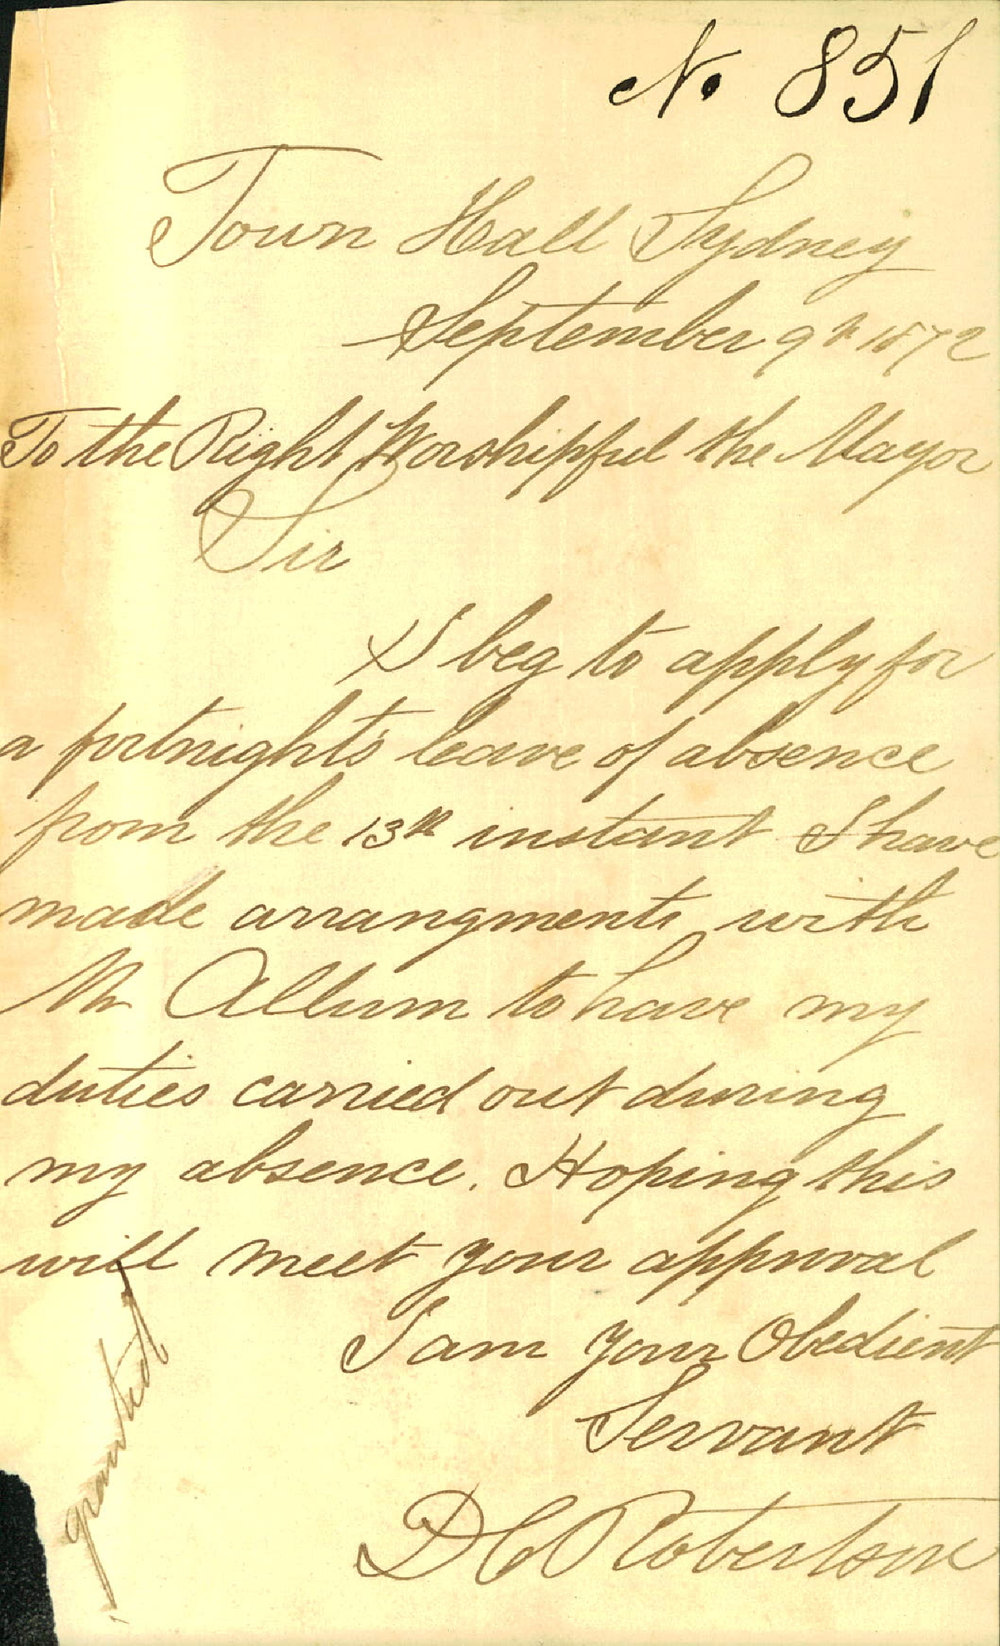 No 851
Town Hall Sydney
September 9th 1872
To the Right Worshipful the Mayor
Sir
I beg to apply for
a fortnight's leave of absence
from the 13th instant I have
made arrangments with
Mr Allum to have my
duties carried out during
my absence. Hoping this
will meet your approval
I am your Obedient
Servant
D C Robertson
granted